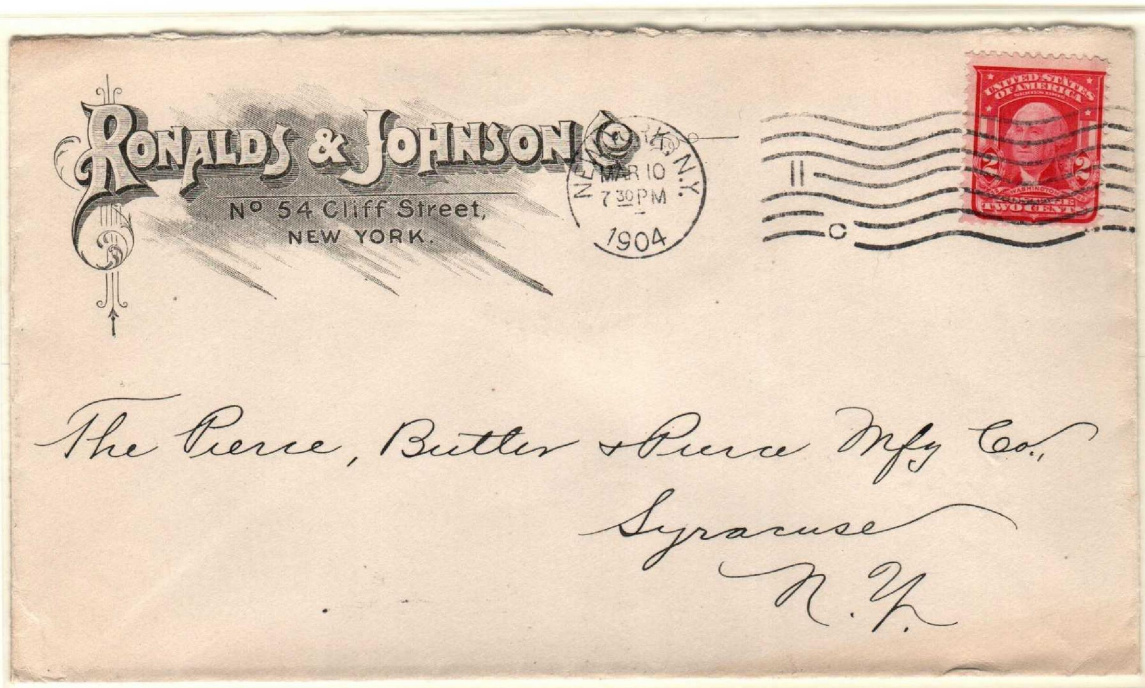 RONALDS & JOHNSON Co
No 54 Cliff Street,
NEW YORK.
NEW YORK, N.Y.
MAR 10
7 30 PM
1904
II
C
UNITED STATES
OF AMERICA
2 2
WASHINGTON
TWO CENTS
The Pierce, Butler & Pierce Mfg Co.,
Syracuse
N. Y.